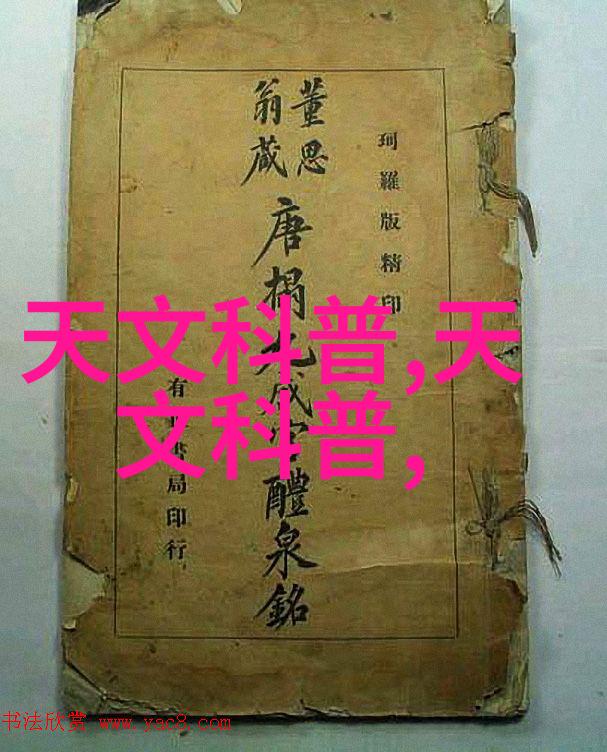 珂羅版精印
董思
翁藏
唐搨九成宮醴泉銘
有正書局印行
天文科普,天
文科普,
书法欣赏 www.yac8.com